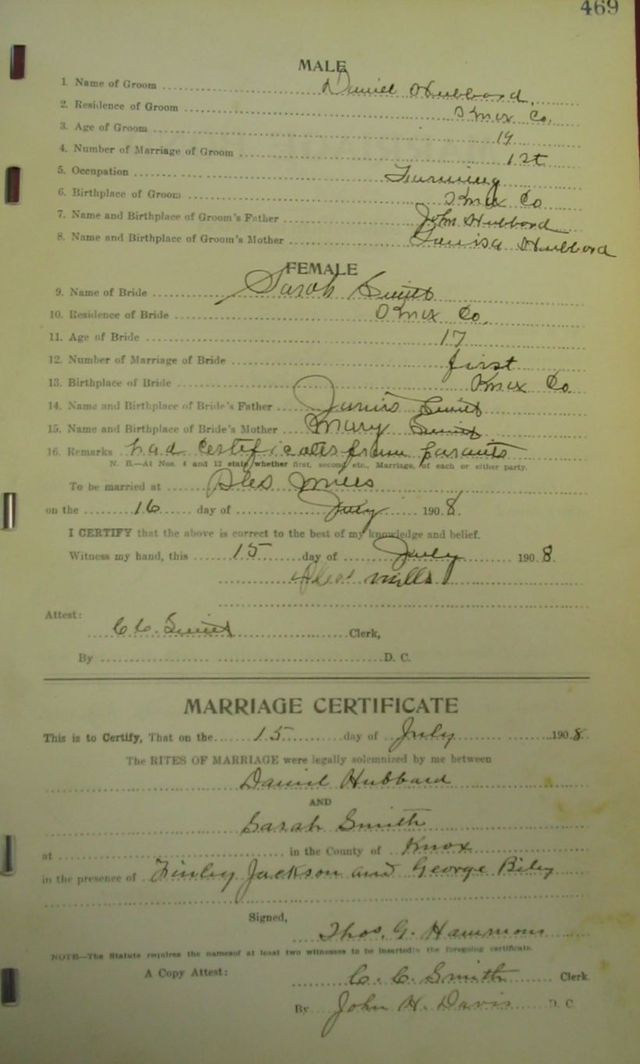 469
MALE
1. Name of Groom Daniel Hubbard.
2. Residence of Groom Knox Co.
3. Age of Groom 19
4. Number of Marriage of Groom 1st
5. Occupation Farming
6. Birthplace of Groom Knox Co
7. Name and Birthplace of Groom's Father John Hubbard
8. Name and Birthplace of Groom's Mother Louisa Hubbard
FEMALE
9. Name of Bride Sarah Smith
10. Residence of Bride Knox Co.
11. Age of Bride 17
12. Number of Marriage of Bride first
13. Birthplace of Bride Knox Co
14. Name and Birthplace of Bride's Father Smith
15. Name and Birthplace of Bride's Mother Mary Smith
16. Remarks had certificates from parants
N. B.—At Nos. 4 and 12 state whether first, second, etc., Marriage, of each or either party.
To be married at
on the 16 day of July 1908.
I CERTIFY that the above is correct to the best of my knowledge and belief.
Witness my hand, this 15 day of July 1908.
mills
Attest:
C C. Smith Clerk,
By D. C.
MARRIAGE CERTIFICATE
This is to Certify, That on the 15 day of July 1908.
The RITES OF MARRIAGE were legally solemnized by me between
Daniel Hubbard
AND
Sarah Smith
at in the County of Knox
in the presence of Finley Jackson and George Biley
Signed,
Thos. G. Hammons
NOTE—The Statute requires the names of at least two witnesses to be inserted in the foregoing certificate.
A Copy Attest: C. C. Smith Clerk
By John H. Davis D. C